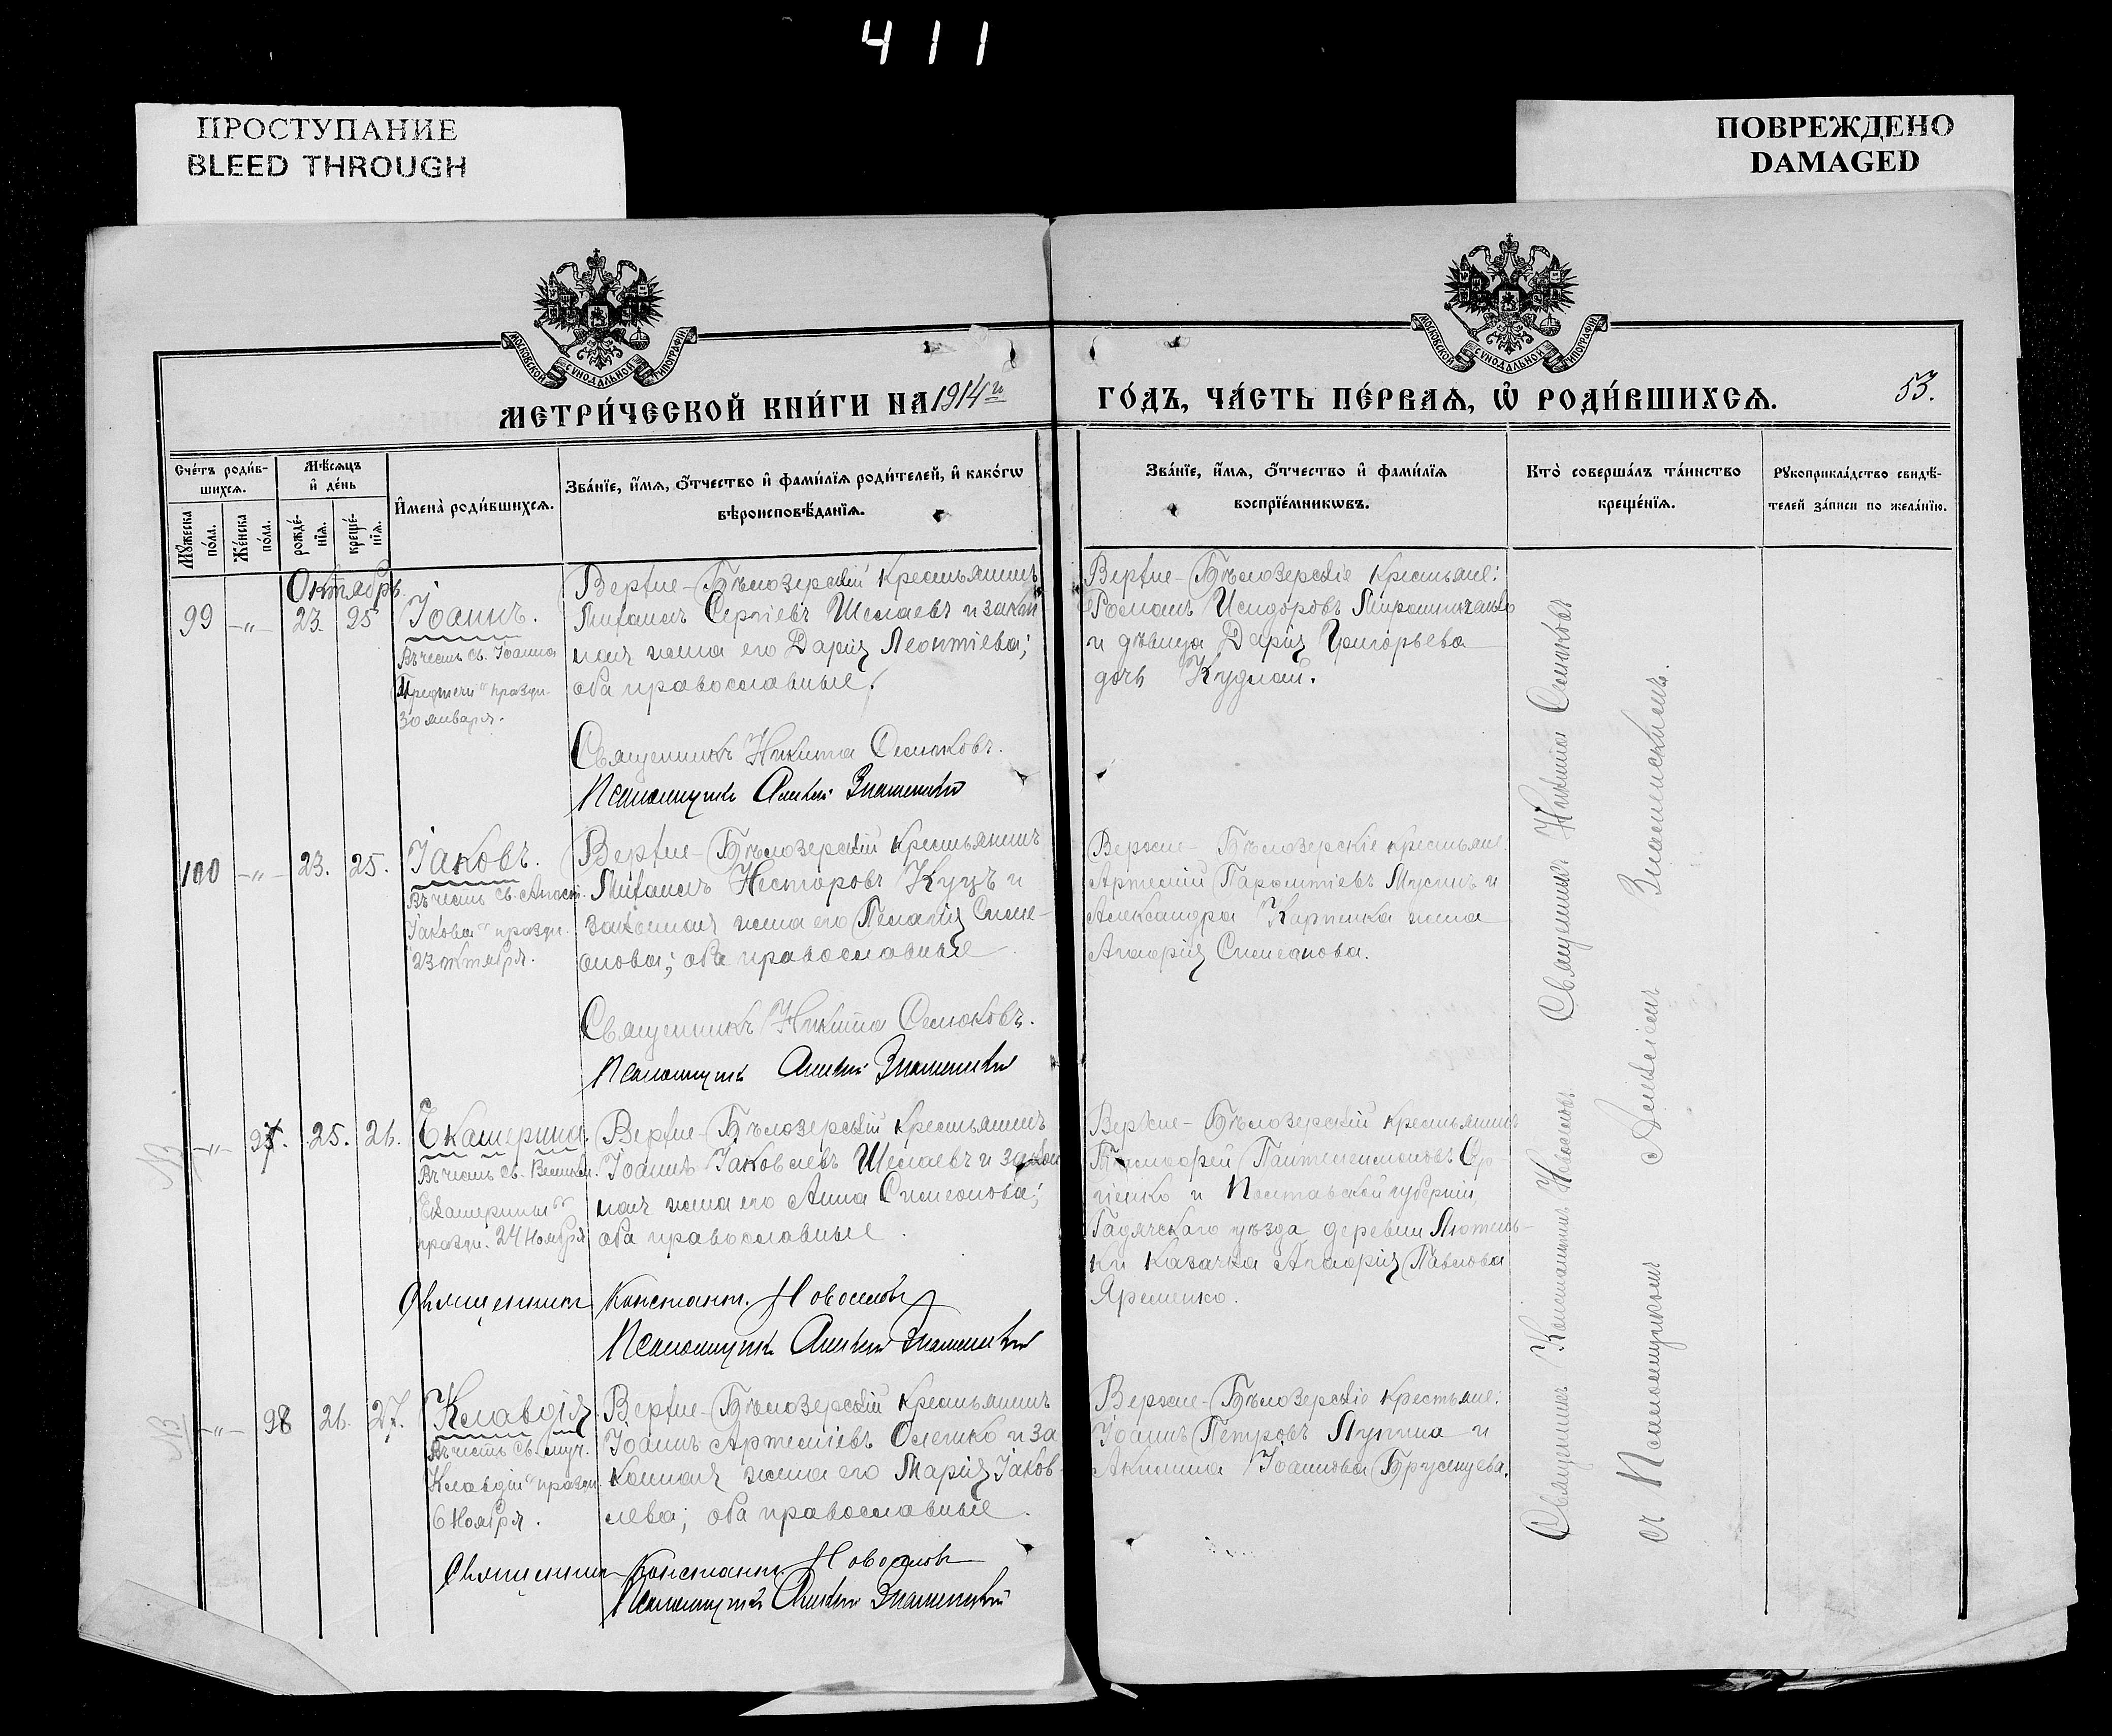 411
ПРОСТУПАНИЕ
BLEED THROUGH
ПОВРЕЖДЕНО
DAMAGED
МОСКОВСКОЙ СѴНОДАЛЬНОЙ ТИПОГРАФІИ
МОСКОВСКОЙ СѴНОДАЛЬНОЙ ТИПОГРАФІИ
МЕТРИ́ЧЕСКОЙ КНИ́ГИ НА 1914 г.
ГО́ДЪ, ЧА́СТЬ ПЕ́РВАѦ, Ѡ҆ РОДИ́ВШИХСѦ.
53.
Сче́тъ роди́в-
шихсѧ.
Мꙋ́жеска
по́ла.
Же́нска
по́ла.
Мѣ́сѧцъ
и҆ де́нь
рожде́-
нїѧ.
креще́-
нїѧ.
И҆мена̀ роди́вшихсѧ.
Зва́нїе, и҆́мѧ, ѻ҆́тчество и҆ фами́лїѧ роди́телей, и҆ како́гѡ
вѣроисповѣ́данїѧ.
Зва́нїе, и҆́мѧ, ѻ҆́тчество и҆ фами́лїѧ
воспрїе́мникѡвъ.
Кто̀ соверша́лъ та́инство
креще́нїѧ.
Рꙋкоприкла́дство свидѣ́-
телей за́писи по жела́нїю.
Октябрь
99 -"- 23. 25
Іоаннъ.
Въ честь св. Іоанна
Предтечи" праздн.
30 января.
Верхне-Бѣлозерскій крестьянинъ
Михаилъ Сергіевъ Шелаевъ и закон
ная жена его Дарія Леонтіева;
оба православные.
Священникъ Никита Семоковъ.
Псаломщикъ Алексій Знаменскій
Верхне-Бѣлозерскіе крестьяне:
Романъ Исидоровъ Мирошниченко
и дѣвица Дарія Григорьева
дочь Кудлай.
100 -"- 23. 25.
Іаковъ.
Въ честь св. Апост.
Іакова" праздн.
23 октября.
Верхне-Бѣлозерскій крестьянинъ
Михаилъ Несторовъ Куцъ и
законная жена его Пелагія Симе-
онова; оба православные
Священникъ Никита Семоковъ.
Псаломщикъ Алексій Знаменскій
Верхне-Бѣлозерскіе крестьяне
Артемій и
Александра Карпенка жена
Агафія Симеонова.
NB
-"- 97. 25. 26.
Екатерина.
Въ честь св. Великом.
Екатерины"
праздн. 24 Ноября
Верхне-Бѣлозерскій крестьянинъ
Іоаннъ Іаковлевъ Шелаевъ и закон
ная жена его Анна Симеонова;
оба православные
Священникъ Константинъ Новоселовъ
Псаломщикъ Алексій Знаменскій
Верхне-Бѣлозерскій крестьянинъ
Тимофей Пантелеимоновъ
и Полтавской губерніи,
Гадячскаго уѣзда деревни Лютень-
ки казачка Агафія Павлова
Яременко.
NB
-"- 98 26. 27.
Клавдія.
Въ честь св. муч.
Клавдіи" праздн.
6 Ноября.
Верхне-Бѣлозерскій крестьянинъ
Іоаннъ Артеміевъ Олешко и за
конная жена его Марія Іаков-
лева; оба православные.
Священникъ Константинъ Новоселовъ
Псаломщикъ Алексій Знаменскій
Верхне-Бѣлозерскіе крестьяне:
Іоаннъ Петровъ Лупина и
Акилина Іоаннова Брусенцева.
Священникъ Константинъ Новоселовъ Священникъ Никита Семоковъ
съ Псаломщикомъ Алексіемъ Знаменскимъ.